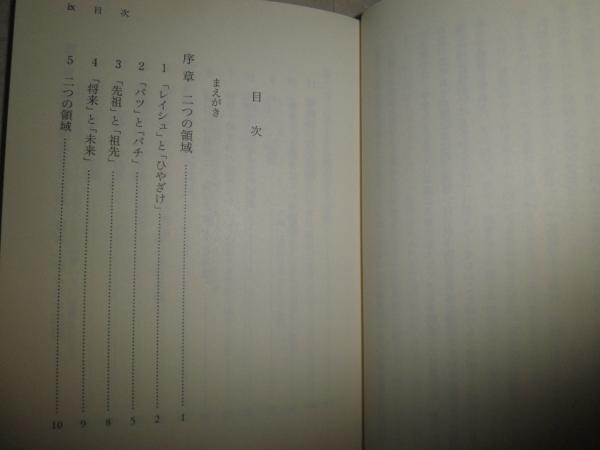 ix 目次
目次
まえがき
序章 二つの領域 1
1 「レイシュ」と「ひやざけ」 2
2 「バツ」と「バチ」 5
3 「先祖」と「祖先」 8
4 「将来」と「未来」 9
5 二つの領域 10